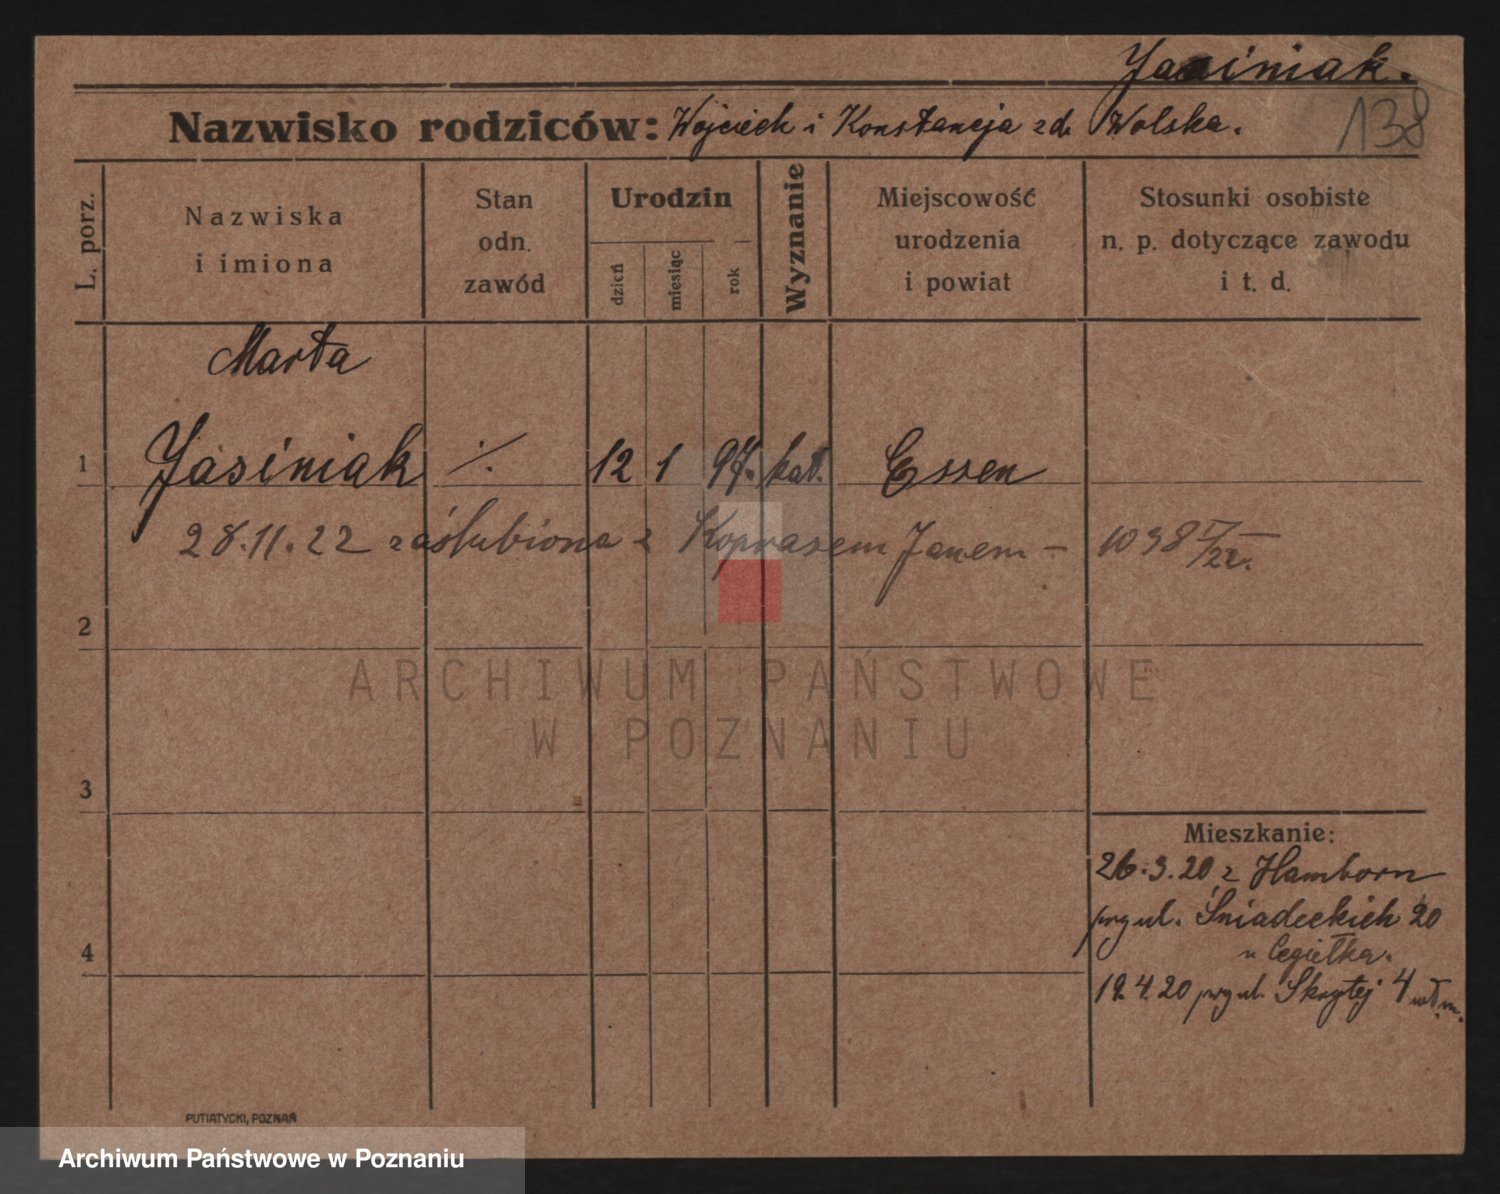 Jasiniak.
138
Nazwisko rodziców: Wojciech i Konstancja z d. Wolska.
L. porz.
Nazwiska
i imiona
Stan
odn.
zawód
Urodzin
dzień
miesiąc
rok
Wyznanie
Miejscowość
urodzenia
i powiat
Stosunki osobiste
n. p. dotyczące zawodu
i t. d.
Marta
1 Jasiniak ./. 12 1 97. kat. Essen
28.11.22 zaślubiona z Koprasem Janem – 1098
2
ARCHIWUM PAŃSTWOWE
W POZNANIU
3
Mieszkanie:
26.3.20 z Hamborn
przy ul. Śniadeckich 20
u Cegiełka.
4
19.4.20 przy ul. Skrytej 4 wł. m.
PUTIATYCKI, POZNAŃ
Archiwum Państwowe w Poznaniu